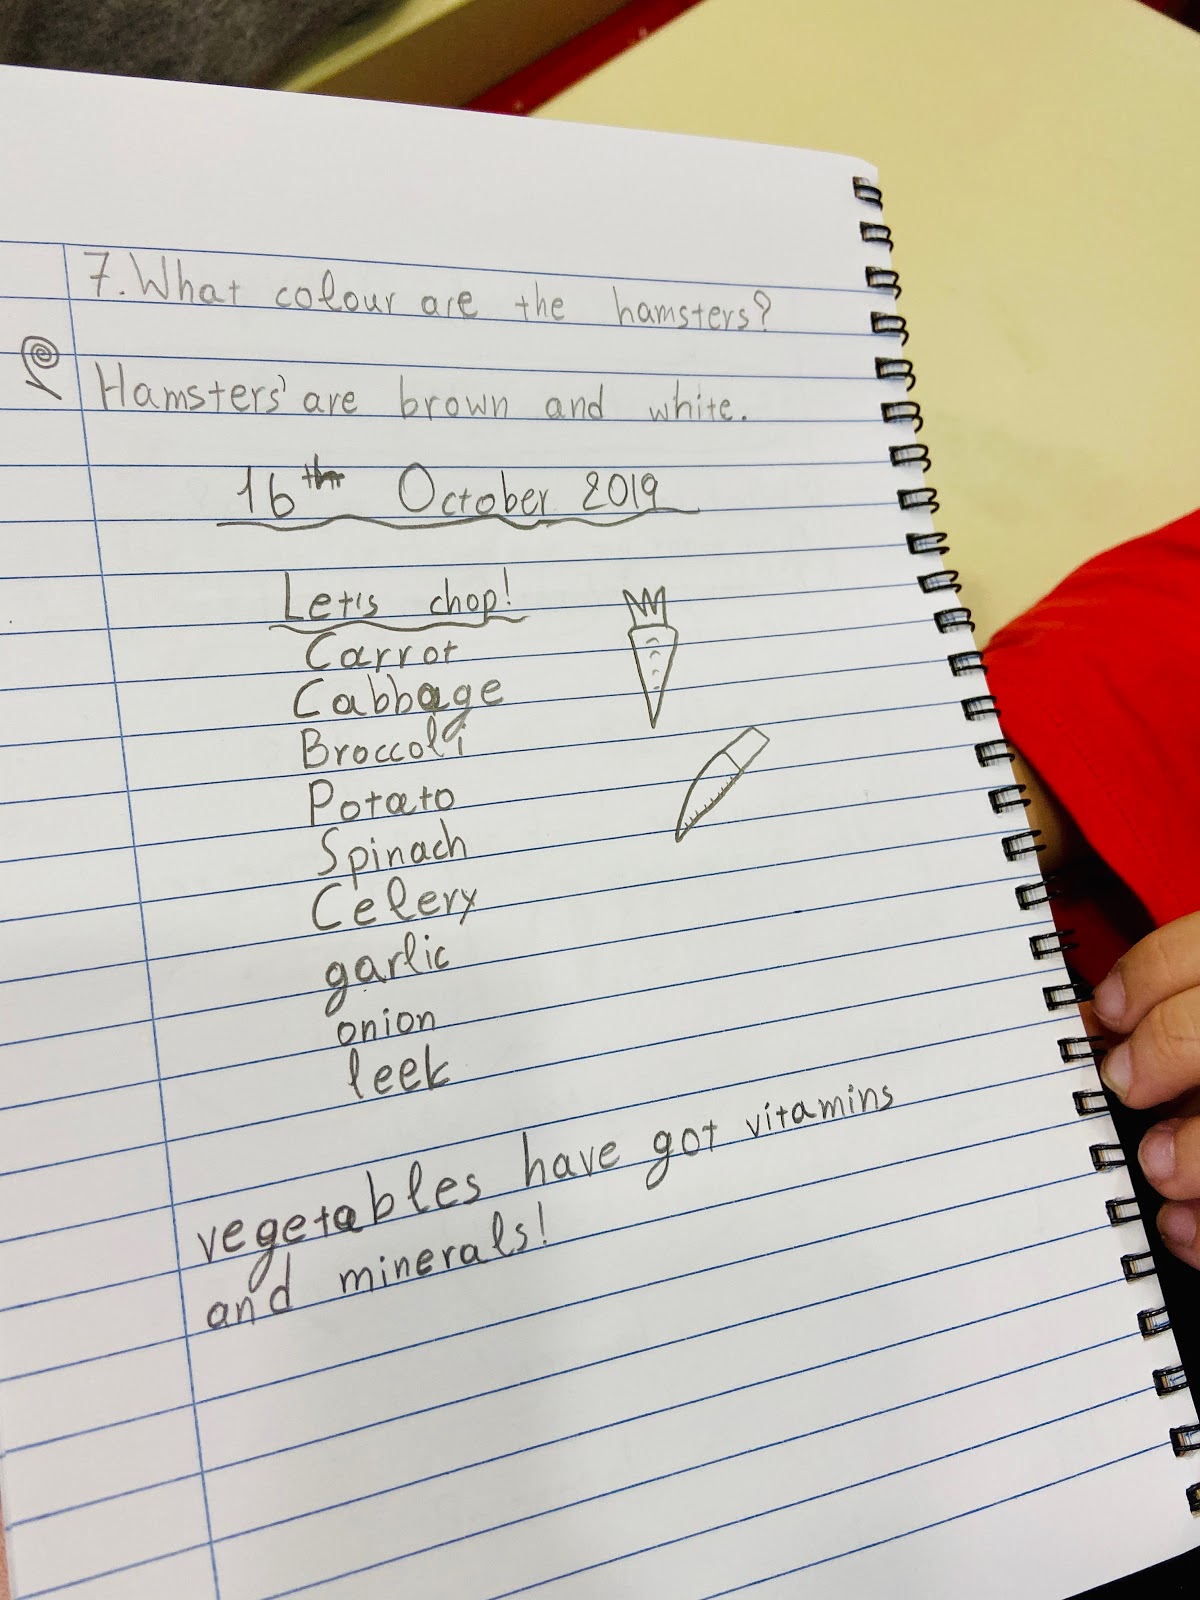 7. What colour are the hamsters?
Hamsters' are brown and white.
16th October 2019
Let's chop!
Carrot
Cabbage
Broccoli
Potato
Spinach
Celery
garlic
onion
leek
vegetables have got vitamins
and minerals!